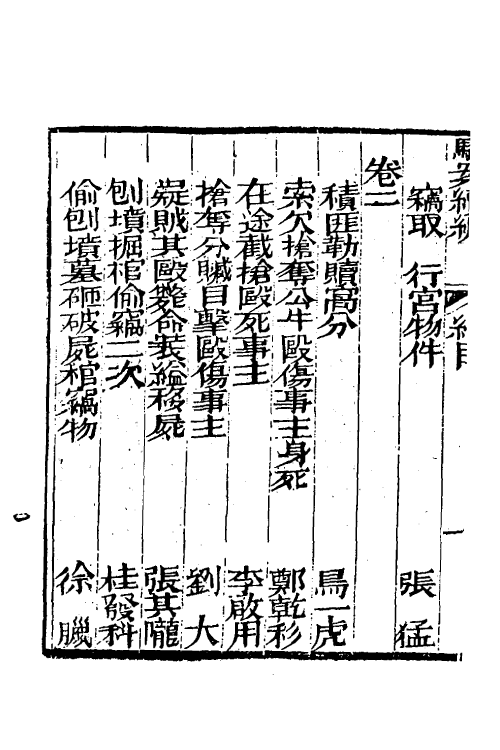 駁案續編 總目 一
竊取 行宮物件 張猛
卷二
積匪勒贖窩分 馬一虎
索欠搶奪公牛毆傷事主身死 鄭乾
在途截搶毆死事主 李啟用
搶奪分贓目擊毆傷事主 劉大
疑賊共毆斃命裝縊移屍 張其隴
刨墳掘棺偷竊二次 桂發科
偷刨墳墓砸破屍棺竊物 徐臘